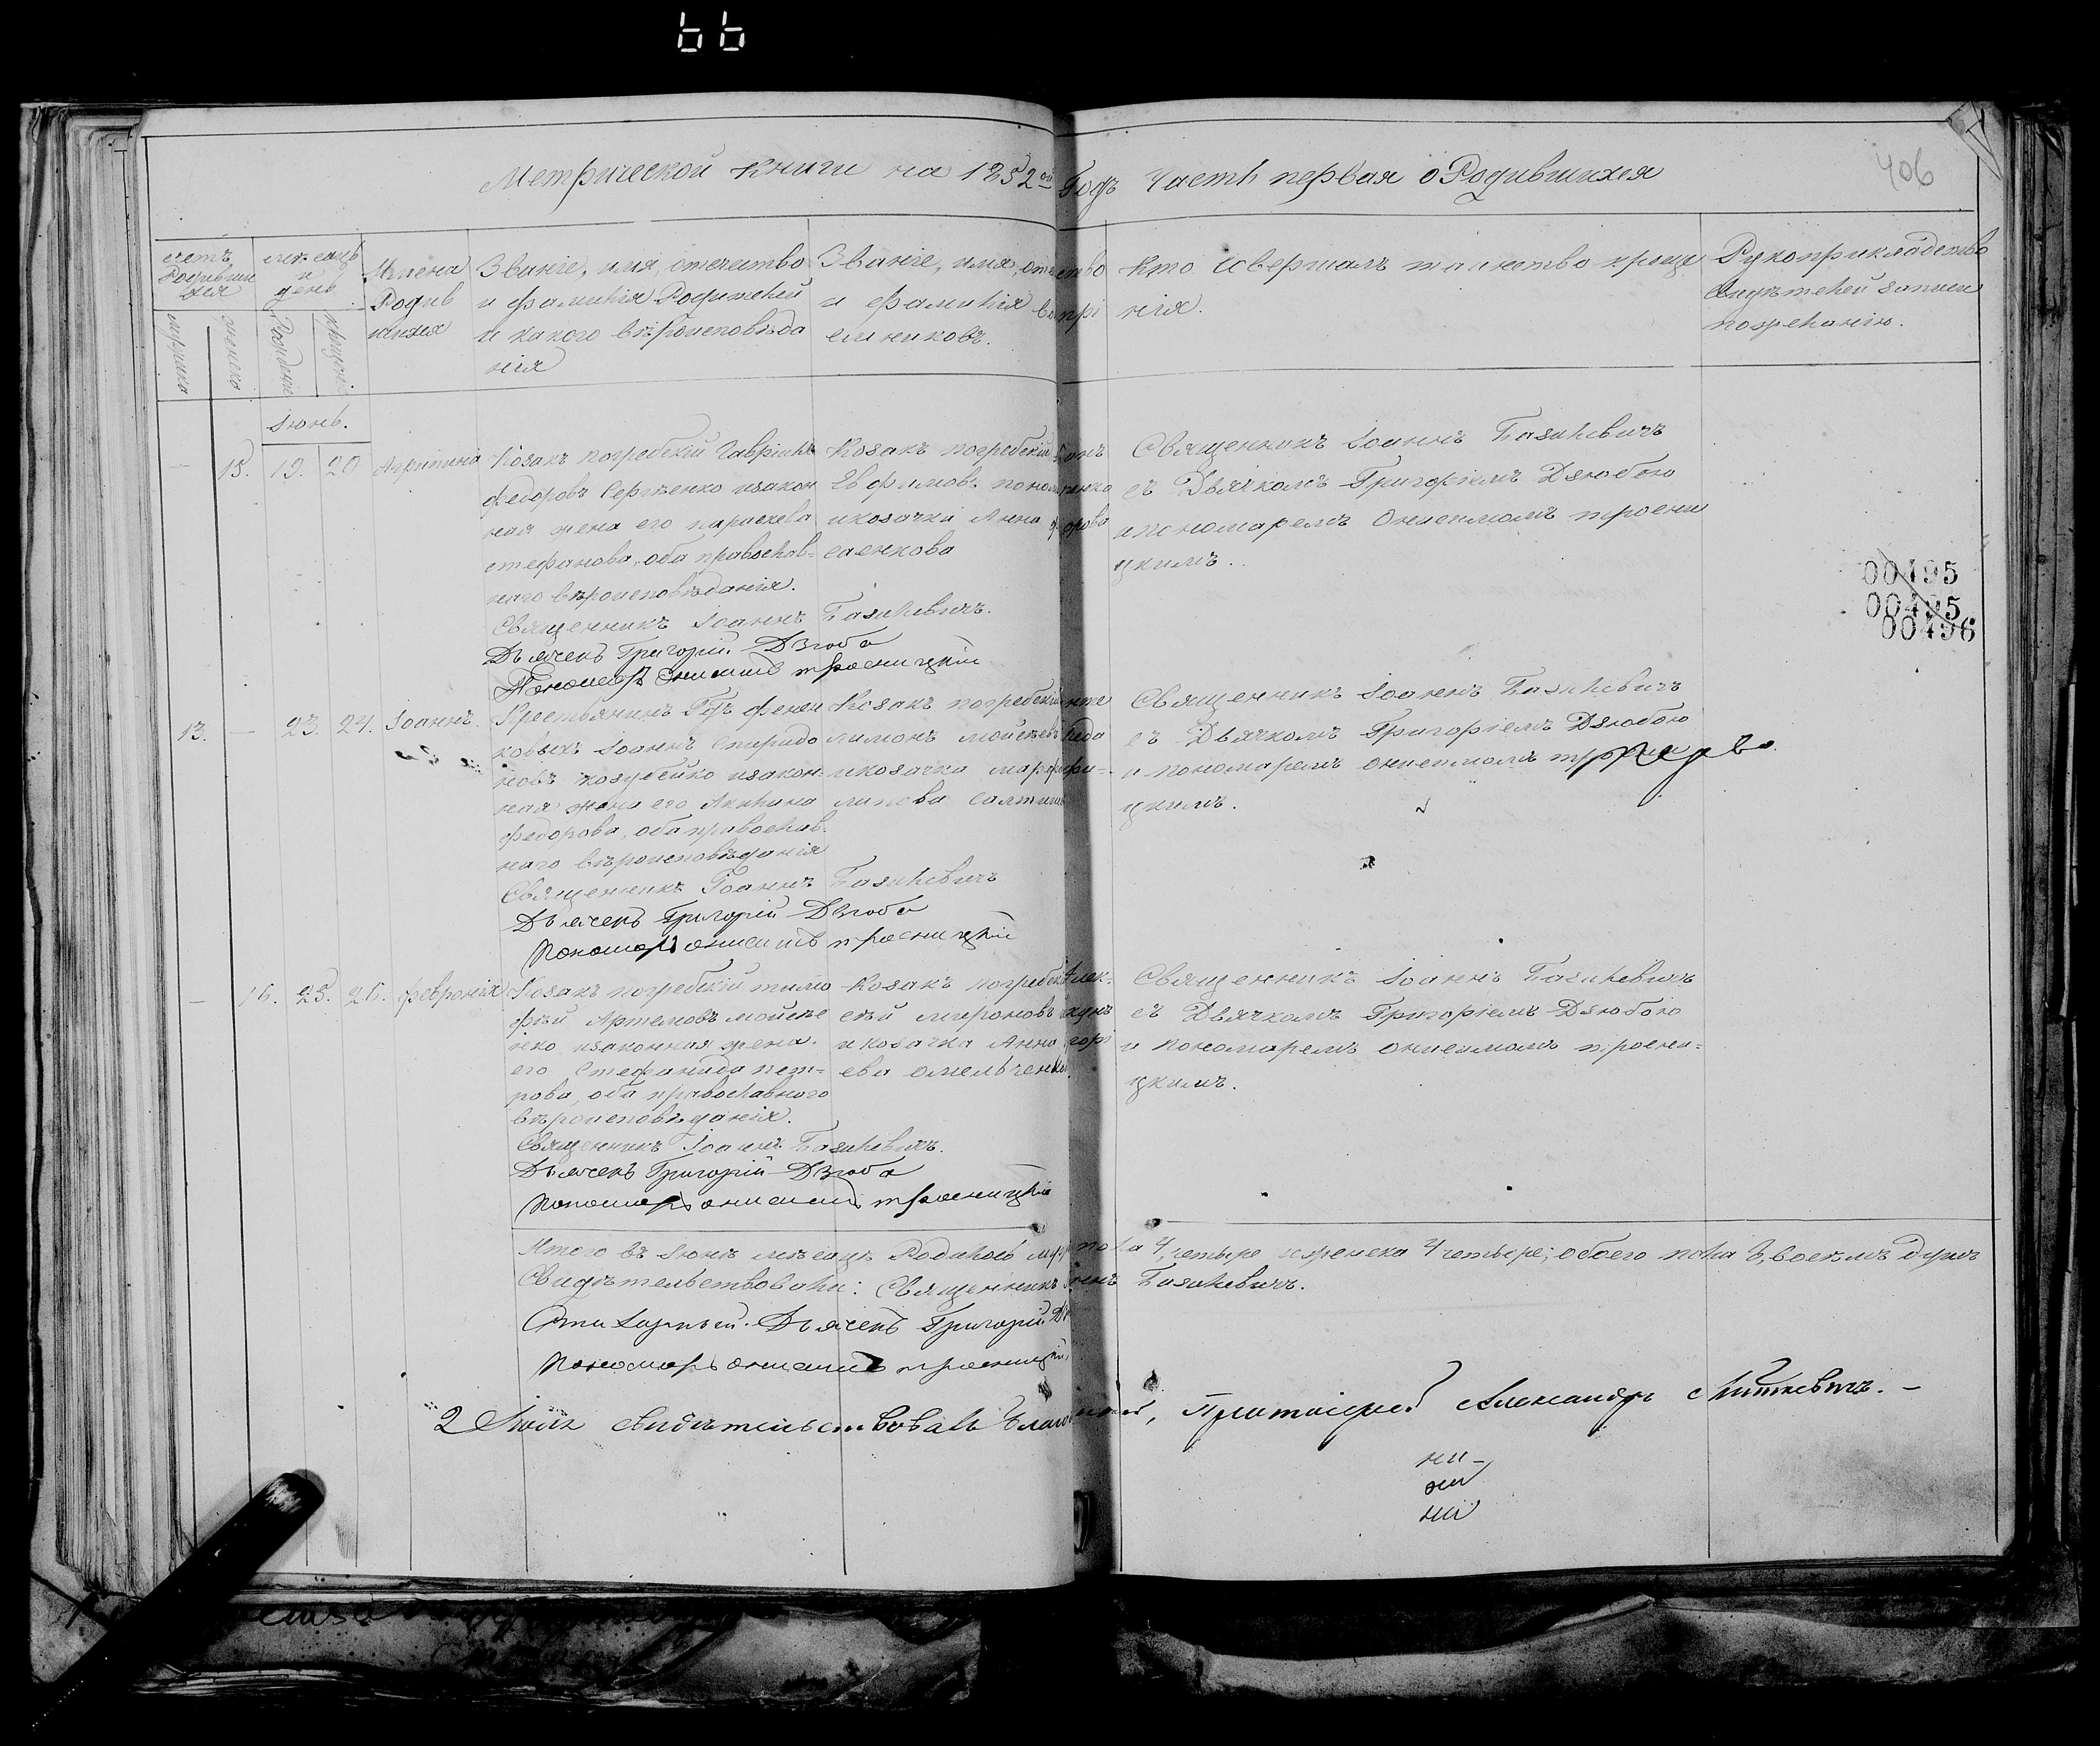 66
Метрической книги на 1852ой Годъ Часть первая о Родившихся
406
счетъ Родивши хся
мужска
женска
месяцъ и день
Рожденіе
крещеніе
Имена Родив шихся
Званіе, имя, отечество
и фамилія Родителей
и какого вѣроисповѣда
нія
Званіе, имя, отечество
и фамилія воспрі
емниковъ.
Кто совершалъ таинство креще
нія.
Рукоприкладство
свидѣтелей записи
по желанію.
Іюнь.
15. 19. 20 Агрипина
Козакъ погребскій Гавріилъ
федоровъ Сергѣенко изакон
ная жена его параскева
стефанова, оба православ=
наго вѣроисповѣданія.
Священникъ Іоаннъ Базилевичъ.
Дьячекъ Григорій Дзюба
Пономарь Онисимъ троеницкій
Козакъ погребскій
Евфимовъ пономаренко
икозачка Анна
саенкова
Священникъ Іоаннъ Базилевичъ
съ Дьячкомъ Григоріемъ Дзюбою
ипономаремъ Онисимомъ троени
цкимъ.
00495
00495
00496
13. — 23. 24. Іоаннъ.
Крестьянинъ
ковыхъ Іоаннъ Спиридо
новъ козубейко изакон=
ная жена его Акилина
федорова, оба православ.
наго вѣроисповѣданія
Священникъ Іоаннъ Базилевичъ
Дьячекъ Григорій Дзюба
Пономарь онисимъ троеницкій
Козакъ погребскій
лимонъ мойсѣевъ
икозачка марфа
липова
Священникъ Іоаннъ Базилевичъ
съ Дьячкомъ Григоріемъ Дзюбою
и пономаремъ онисимомъ
цкимъ.
— 16. 25. 26. февронія
Козакъ погребскій тимо
фѣй Артемовъ мойсѣе
нко изаконная жена
его Стефанида пет=
рова, оба православного
вѣроисповѣданія.
Священникъ Іоаннъ Базилевичъ.
Дьячекъ Григорій Дзюба
Пономарь онисимъ троеницкій
Козакъ погребскій Алек=
сѣй мироновъ
и козачка Анна григорі
ева омельченкова.
Священникъ Іоаннъ Базилевичъ
съ Дьячкомъ Григоріемъ Дзюбою
и пономаремъ онисимомъ троени=
цкимъ.
Итого въ Іюнѣ месяцѣ Родилось муж. пола 4, четыре, женска 4 четыре; обоего пола 8, восемъ душъ
Свидѣтельствовали: Священникъ Іоаннъ Базилевичъ.
Дьячекъ Григорій
Пономарь онисимъ троеницкій
2 Іюля Свидѣтельствовалъ Благочинный, Протоіерей Александръ